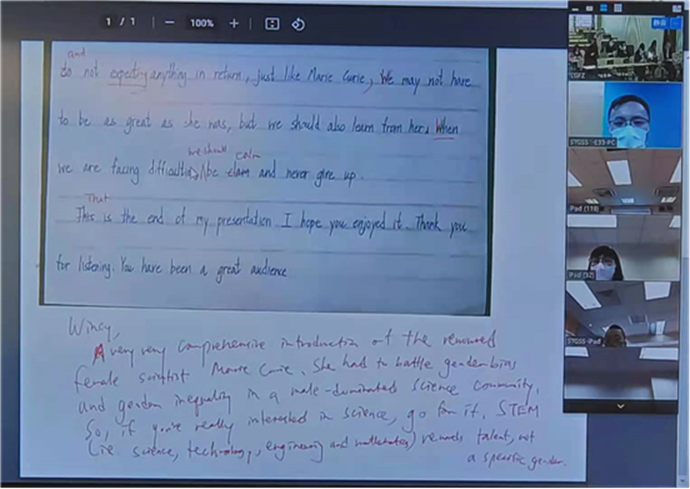 1 / 1 — 100% +
and
do not expecting anything in return, just like Marie Curie, We may not have
to be as great as she was, but we should also learn from her. When
we should calm
we are facing difficulties, be clam and never give up.
That
This is the end of my presentation I hope you enjoyed it. Thank you
for listening. You have been a great audience
Wincy,
A very very comprehensive introduction of the renowned
female scientist Marie Curie. She had to battle gender bias
and gender inequality in a male-dominated science community.
So, if you're really interested in science, go for it. STEM
(ie. science, technology, engineering and mathematics) rewards talent, not
a specific gender.
iPad (119)
iPad (32)
SYGSS-iPad